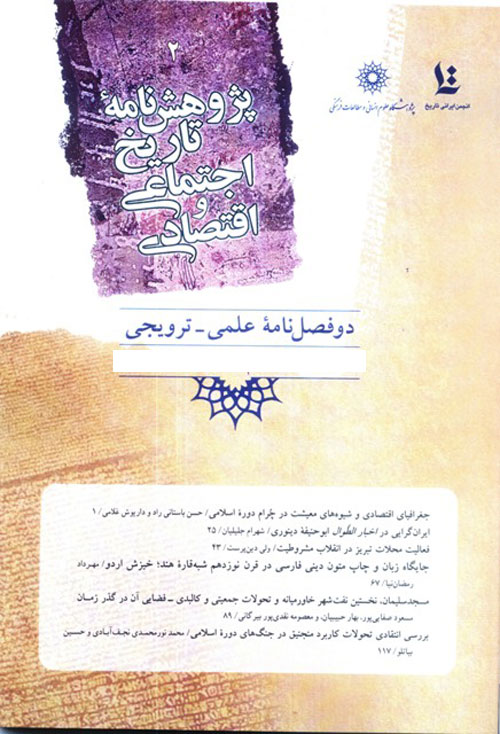 انجمن ایرانی تاریخ
پژوهشگاه علوم انسانی و مطالعات فرهنگی
۲
پژوهش‌نامهٔ
تاریخ
اجتماعی
و
اقتصادی
دو فصل‌نامهٔ علمی - ترویجی
جغرافیای اقتصادی و شیوه‌های معیشت در جُرام دورهٔ اسلامی/ حسن باستانی راد و داریوش غلامی/ ۱
ایران‌گرایی در اخبار الطّوال ابوحنیفهٔ دینوری/ شهرام جلیلیان/ ۲۵
فعالیت محلات تبریز در انقلاب مشروطیت/ ولی دین‌پرست/ ۴۳
جایگاه زبان و چاپ متون دینی فارسی در قرن نوزدهم شبه‌قارهٔ هند؛ خیزش اردو/ مهرداد
رمضان‌نیا/ ۶۷
مسجدسلیمان، نخستین نفت‌شهر خاورمیانه و تحولات جمعیتی و کالبدی - فضایی آن در گذر زمان
مسعود صفایی‌پور، بهار حبیبیان، و معصومه نقدی‌پور بیرگانی/ ۸۹
بررسی انتقادی تحولات کاربرد منجنیق در جنگ‌های دورهٔ اسلامی/ محمد نورمحمدی نجف‌آبادی و حسین
بیاتلو/ ۱۱۷